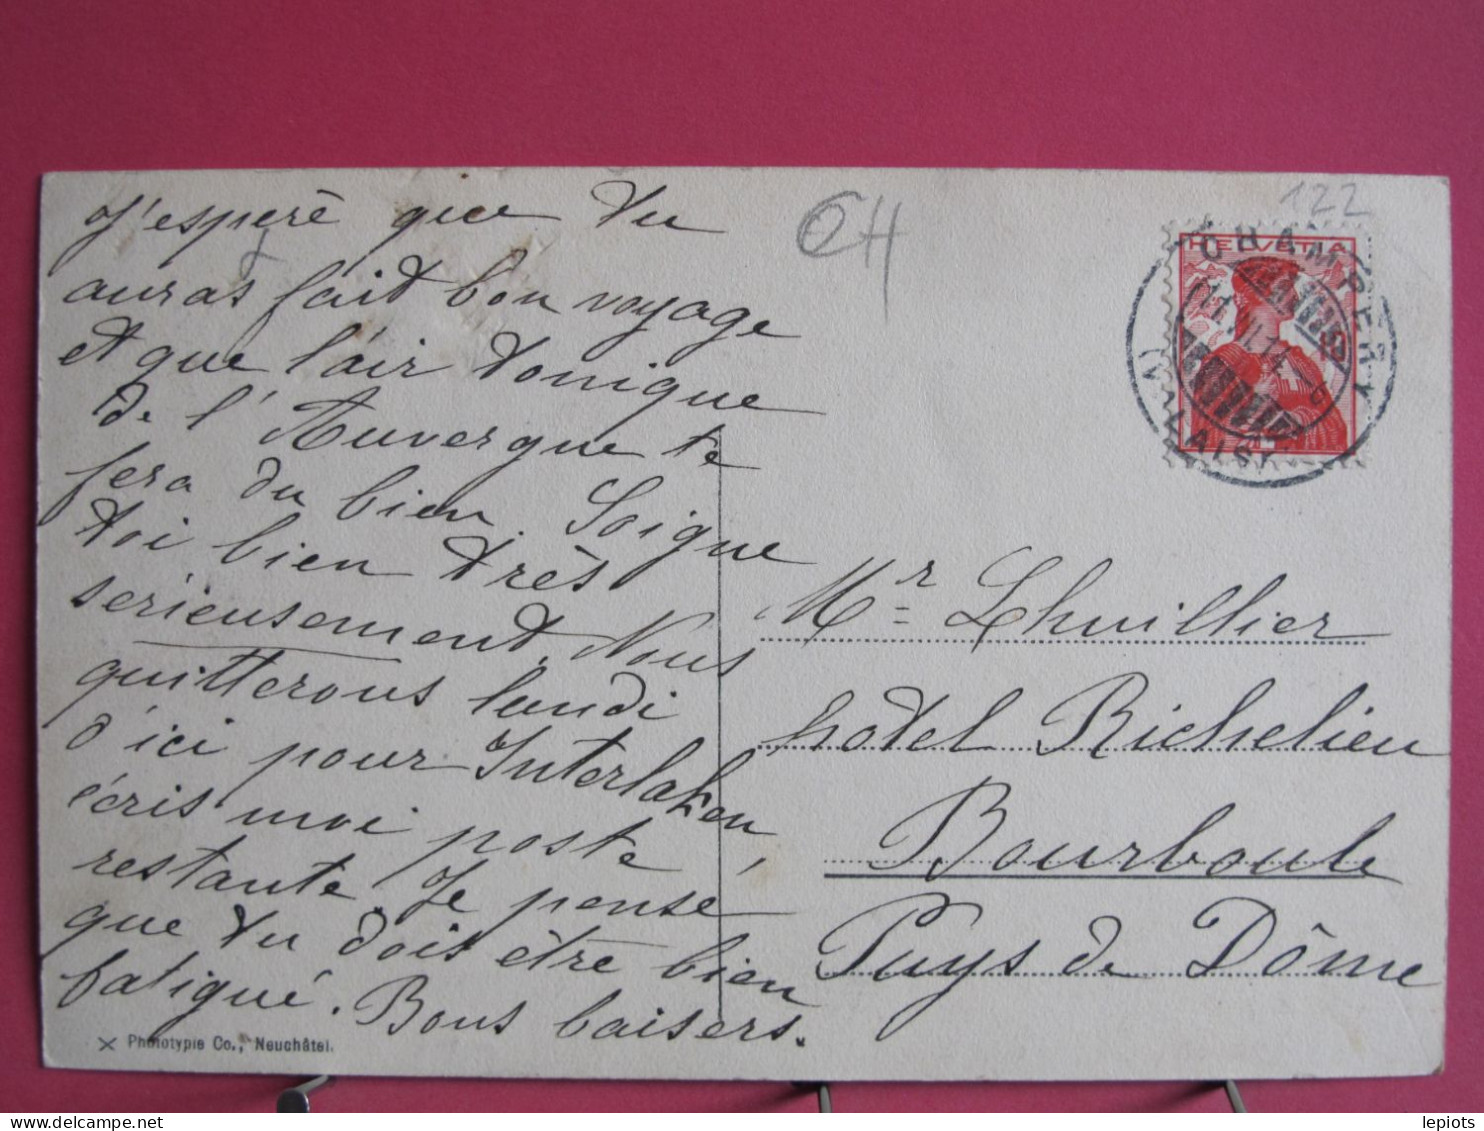 J'espère que tu
auras fait bon voyage
et que l'air tonique
de l'Auvergne te
fera du bien. Soigne
toi bien très
serieusement. Nous
quitterons lundi
d'ici pour Interlaken,
écris moi poste
restante. Je pense
que tu dois être bien
fatigué. Bons baisers.
Phototypie Co., Neuchâtel.
CH
122
HELVETIA
CHAMPÉRY
(VALAIS)
Mr Lhuillier
hotel Richelieu
Bourboule
Puys de Dôme
lepiots